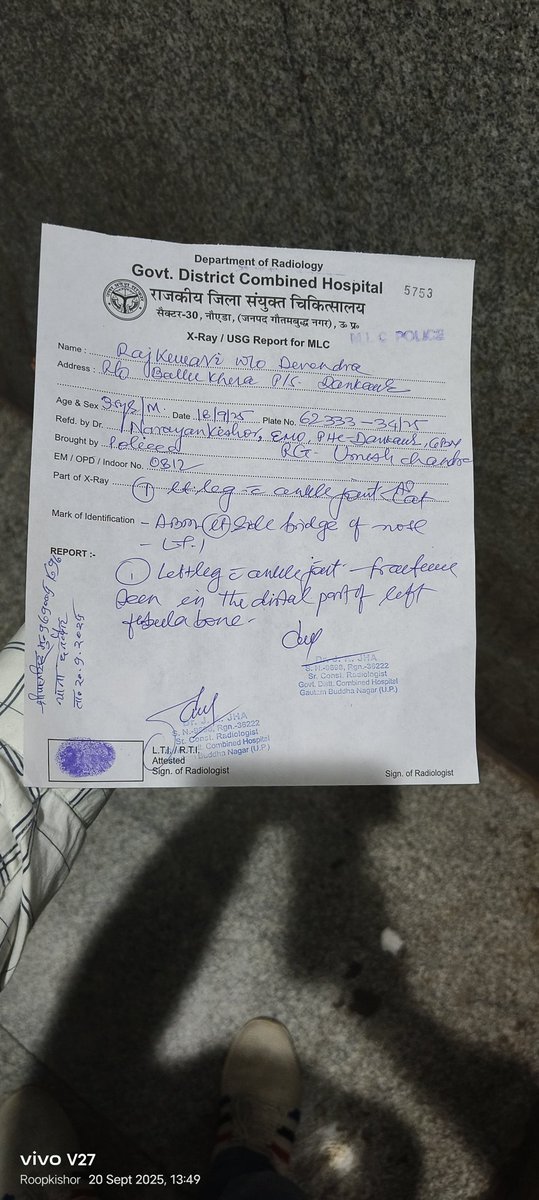 Department of Radiology
Govt. District Combined Hospital
5753
राजकीय जिला संयुक्त चिकित्सालय
सैक्टर-30, नौएडा, (जनपद गौतमबुद्ध नगर), उ० प्र०
X-Ray / USG Report for MLC
M L C POLICE
Name : RajKumari W/o Devendra
Address : R/o Ballu Khera P/S. Dankaur
Age & Sex /M. Date 18/9/25 Plate No. 62333-34/25
Refd. by Dr. Narayan Kishor, EMO, PHC-Dankaur, GBN
Brought by Policeed Umesh Chandra
EM / OPD / Indoor No. 0812
Part of X-Ray ① Lt. leg = ankle joint AP Lat
Mark of Identification - side bridge of nose
REPORT :-
① Left leg = ankle joint - fracture
seen in the distal part of left
fibula bone-
ता० 20.9.2025
Dr. J. K. JHA
S. N.-6898, Rgn.-36222
Sr. Const. Radiologist
Govt. Distt. Combined Hospital
Gautam Buddha Nagar (U.P.)
Dr. J. JHA
S. N.-6898, Rgn.-36222
Sr. Const. Radiologist
Combined Hospital
Buddha Nagar (U.P.)
L.T.I. / R.T.I.
Attested
Sign. of Radiologist
Sign. of Radiologist
vivo V27
Roopkishor 20 Sept 2025, 13:49